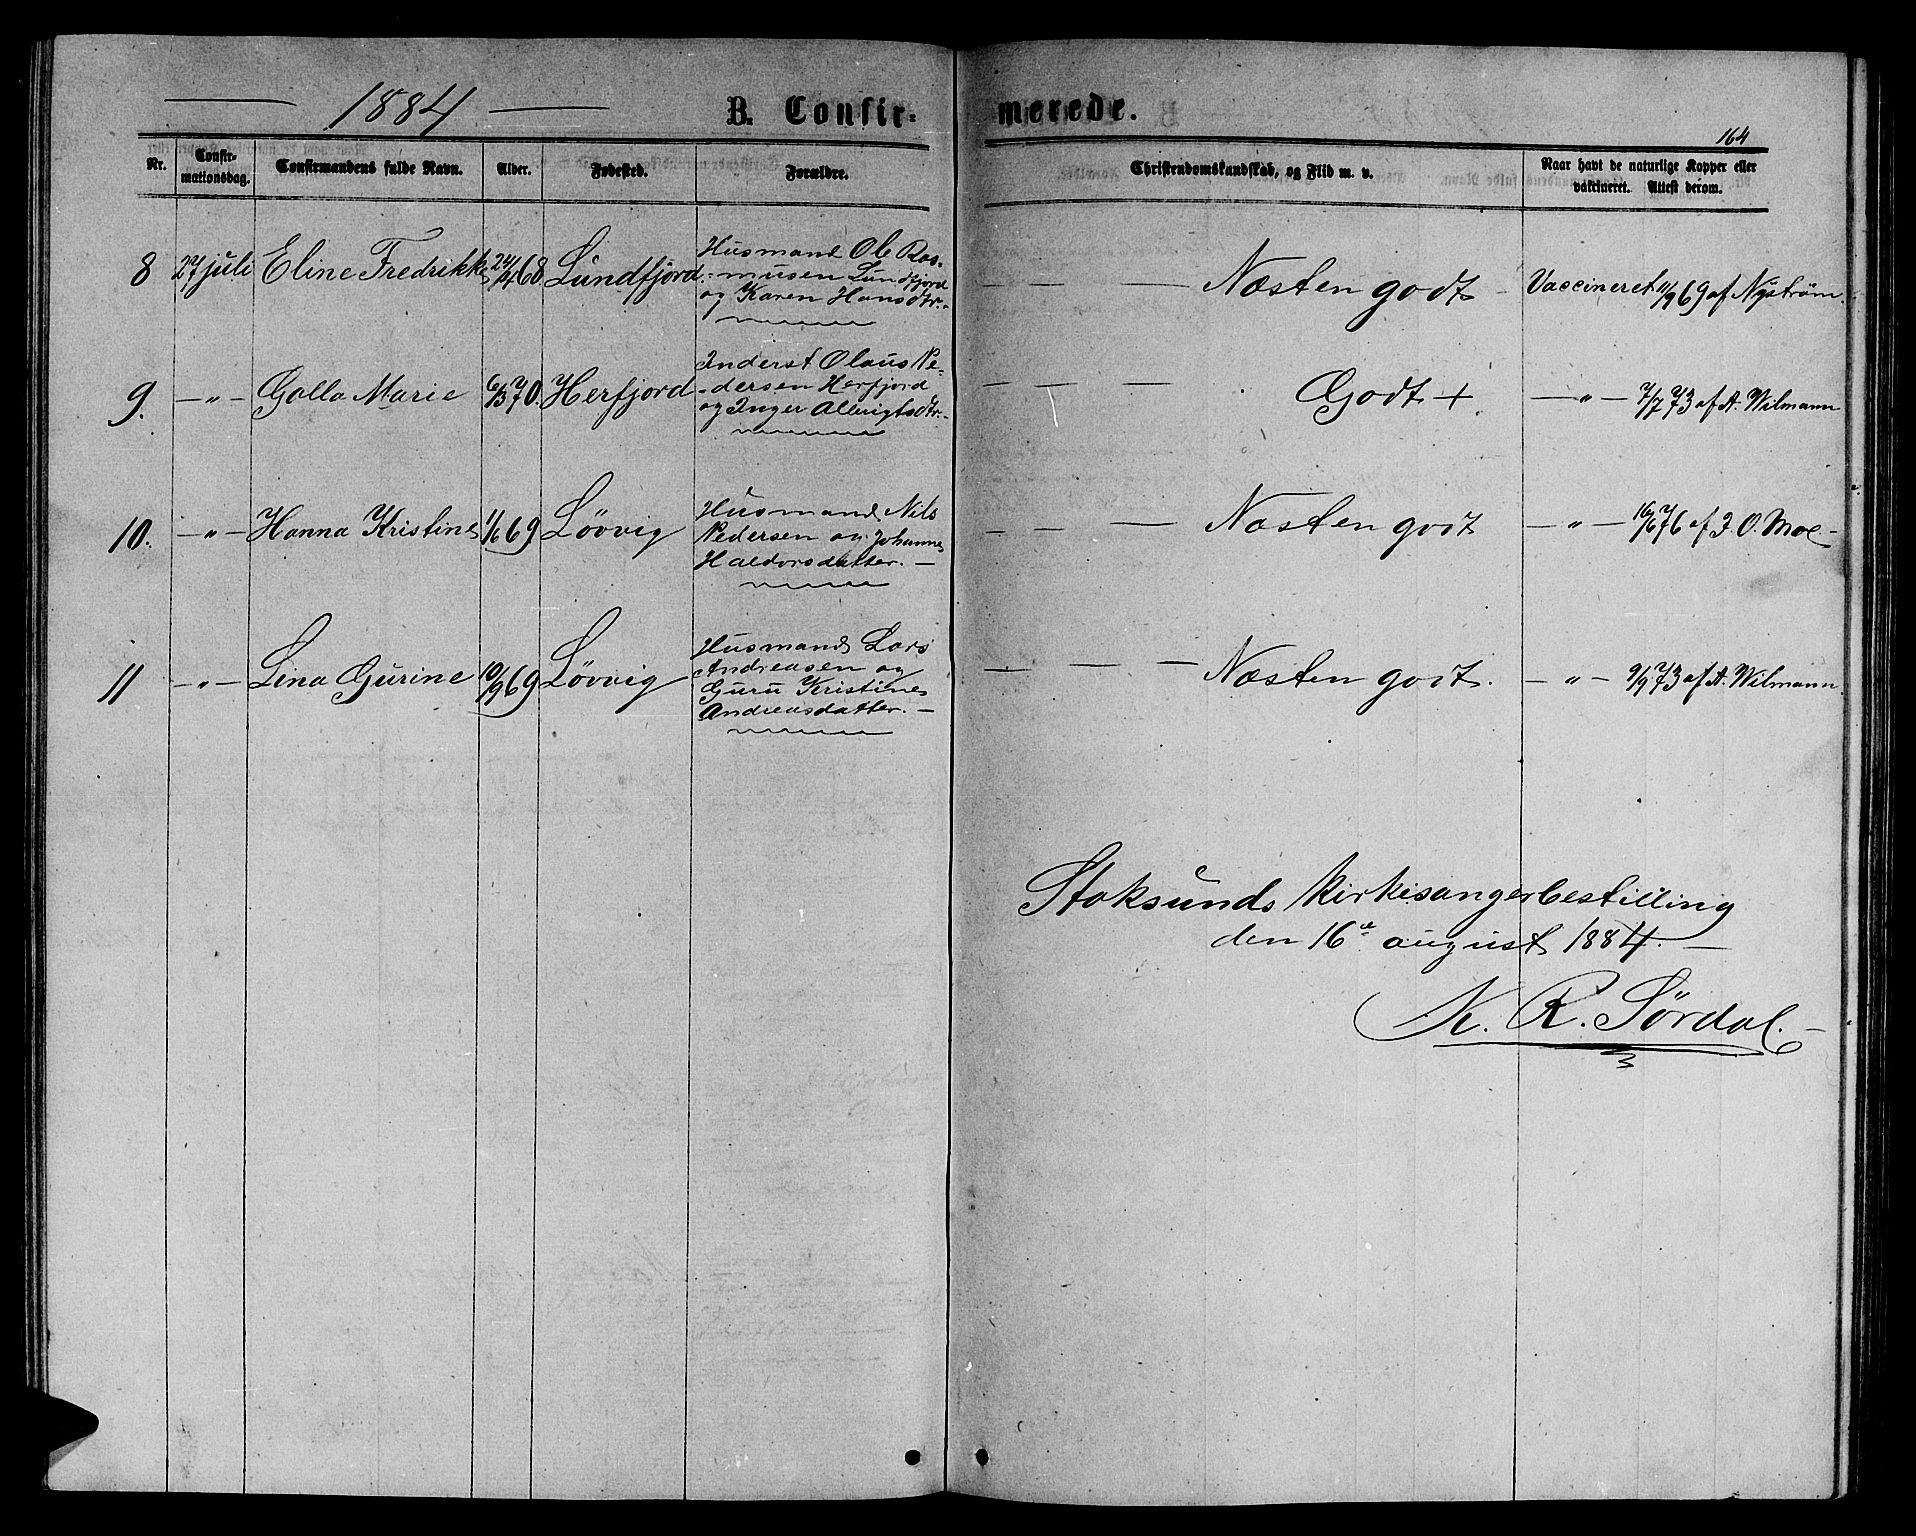 1884 B. Confirmerede.
164
Nr. Confirmationsdag. Confirmandens fulde Navn. Alder. Fødested. Forældre. Christendomskundskab, og Flid m. v. Naar havt de naturlige Kopper eller vakcineret. Attest derom.
8 27 juli Eline Fredrikke 24/4 68 Lundfjord Husmand Ole Ras- Næsten godt Vaccineret 11/9 69 af Nystrøm.
musen Lundfjord
og Karen Hansdtr.
9. —„— Golla Marie 6/3 70. Herfjord Inderst Olaus Pe- Godt + —„— 7/7 73 af A. Wilmann
dersen Herfjord
og Inger Albrigtsdtr.
10. —„— Hanna Kristine 1/6 69 Løvvig Husmand Nils Næsten godt —„— 16/6 76 af J. O. Moe.
Pedersen og Johanne
Haldorsdatter. —
11 —„— Lina Gurine 10/9 69 Løvvig Husmand Lars Næsten godt. —„— 9/9 73 af A. Wilmann.
Andreasen og
Guru Kristine
Andreasdatter. —
Stoksunds kirkesangerbestilling
den 16de august 1884. —
K. R. Sørdal. —